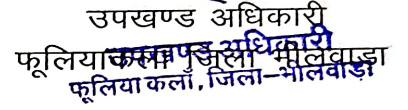 उपखण्ड अधिकारी
फूलियाकलां जिला भीलवाड़ा
उपखण्ड अधिकारी
फूलिया कलाँ, जिला–भीलवाड़ा